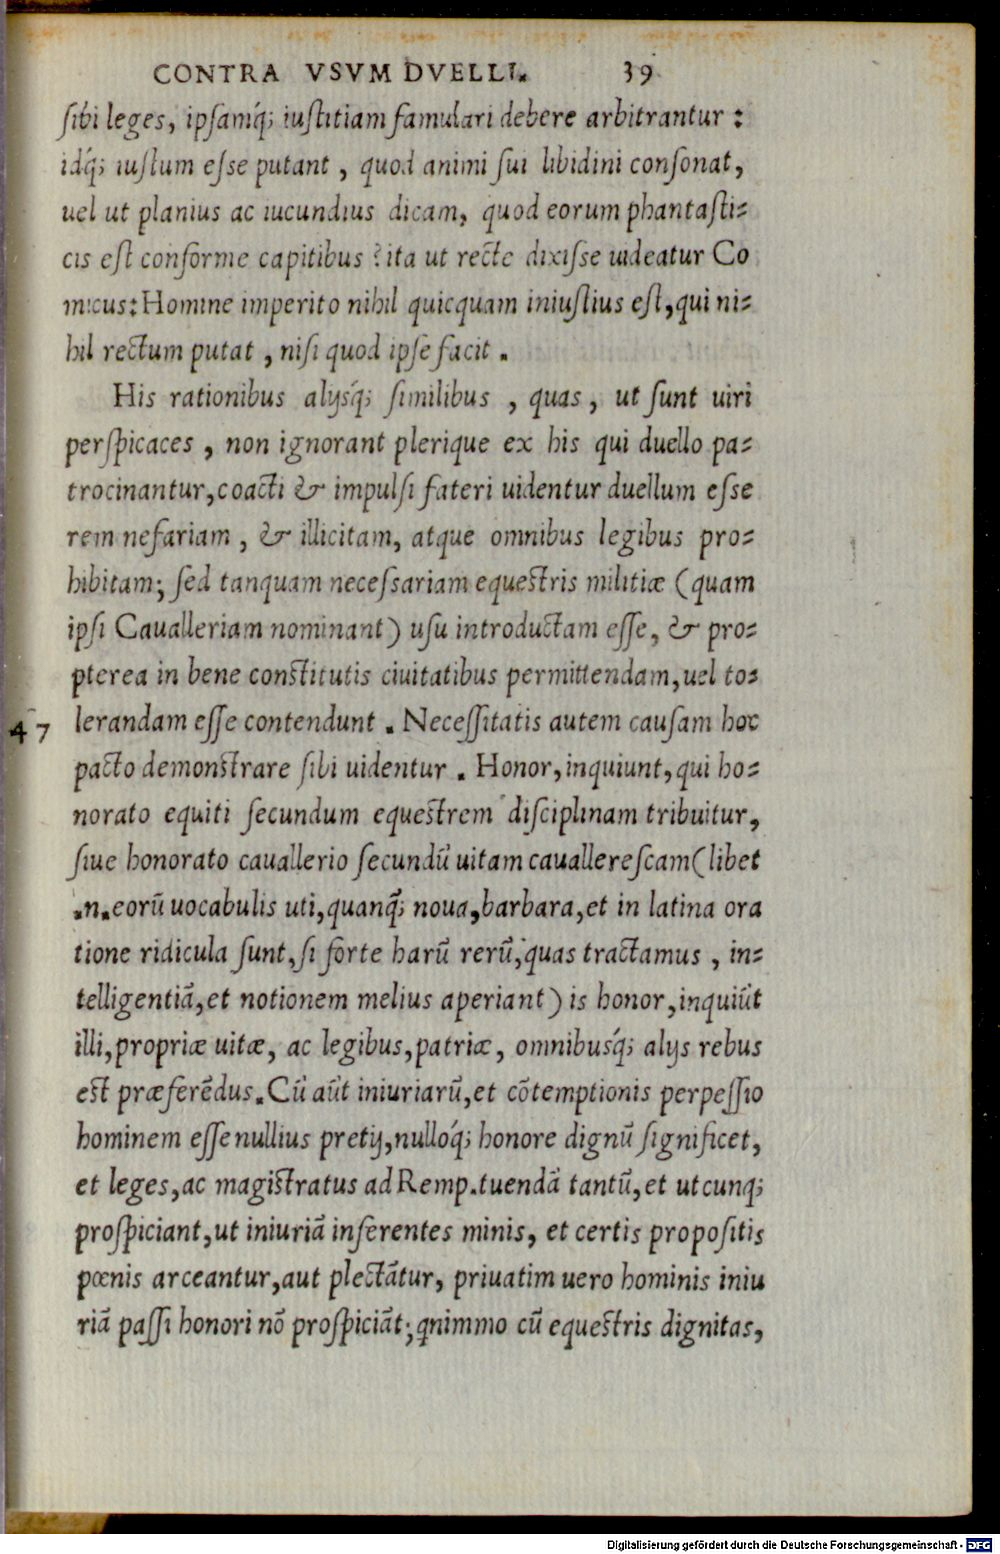 CONTRA VSVM DVELLI. 39
ſibi leges, ipſamq́; iuſtitiam famulari debere arbitrantur :
idq́; iuſtum eſse putant , quod animi ſui libidini conſonat,
uel ut planius ac iucundius dicam, quod eorum phantaſti-
cis eſt conforme capitibus ? ita ut recte dixiſse uideatur Co
micus: Homine imperito nihil quicquam iniuſtius eſt, qui ni-
hil rectum putat , niſi quod ipſe facit .
His rationibus alijsq́; ſimilibus , quas , ut ſunt uiri
perſpicaces , non ignorant plerique ex his qui duello pa-
trocinantur, coacti & impulſi fateri uidentur duellum eſse
rem nefariam , & illicitam, atque omnibus legibus pro-
hibitam; ſed tanquam neceſsariam equeſtris militiæ (quam
ipſi Caualleriam nominant) uſu introductam eſſe, & pro-
pterea in bene conſtitutis ciuitatibus permittendam, uel to-
47 lerandam eſſe contendunt . Neceſſitatis autem cauſam hoc
pacto demonſtrare ſibi uidentur . Honor, inquiunt, qui ho-
norato equiti ſecundum equeſtrem diſciplinam tribuitur,
ſiue honorato cauallerio ſecundū uitam cauallereſcam (libet
.n. eorū uocabulis uti, quanq̃; noua, barbara, et in latina ora
tione ridicula ſunt, ſi forte harū rerū, quas tractamus , in-
telligentiā, et notionem melius aperiant) is honor, inquiūt
illi, propriæ uitæ, ac legibus, patriæ, omnibusq́; alijs rebus
eſt præferēdus. Cū aūt iniuriarū, et cōtemptionis perpeſſio
hominem eſſe nullius pretij, nulloq́; honore dignū ſignificet,
et leges, ac magiſtratus ad Remp. tuendā tantū, et utcunq;
proſpiciant, ut iniuriā inferentes minis, et certis propoſitis
pœnis arceantur, aut plectātur, priuatim uero hominis iniu
riā paſſi honori nō proſpiciāt; qnimmo cū equeſtris dignitas,
Digitalisierung gefördert durch die Deutsche Forschungsgemeinschaft - DFG